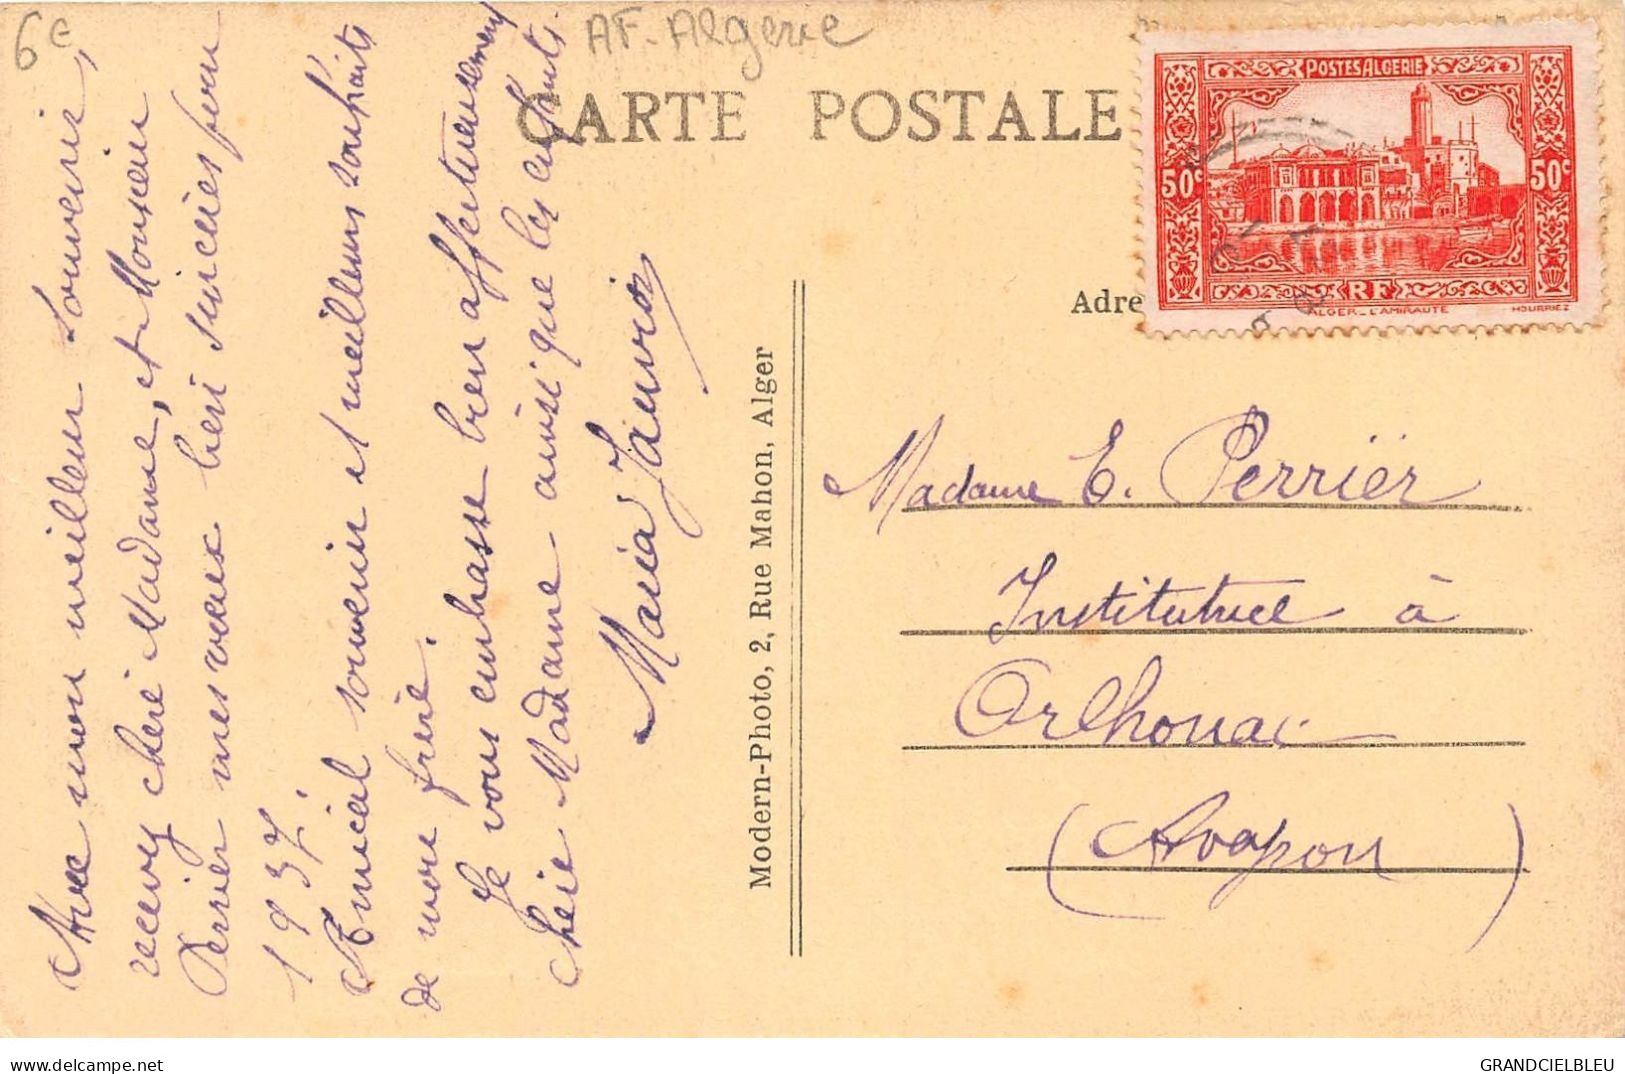 6€
AF. Algerie
CARTE POSTALE
POSTES ALGERIE
50c
50c
RF
ALGER _ L'AMIRAUTÉ
HOURRIEZ
Adre
Avec mon meilleur souvenir,
recevez chère Madame, et Monsieur
Perrier mes voeux bien sincères pour
1937.
Amical souvenir et meilleurs souhaits
de mon frère.
Je vous embrasse bien affectueusement
chère Madame ainsi que les enfants.
Maria Janvier
Modern-Photo, 2, Rue Mahon, Alger
Madame E. Perrier
Institutrice à
Orlhonac
(Aveyron)
GRANDCIELBLEU